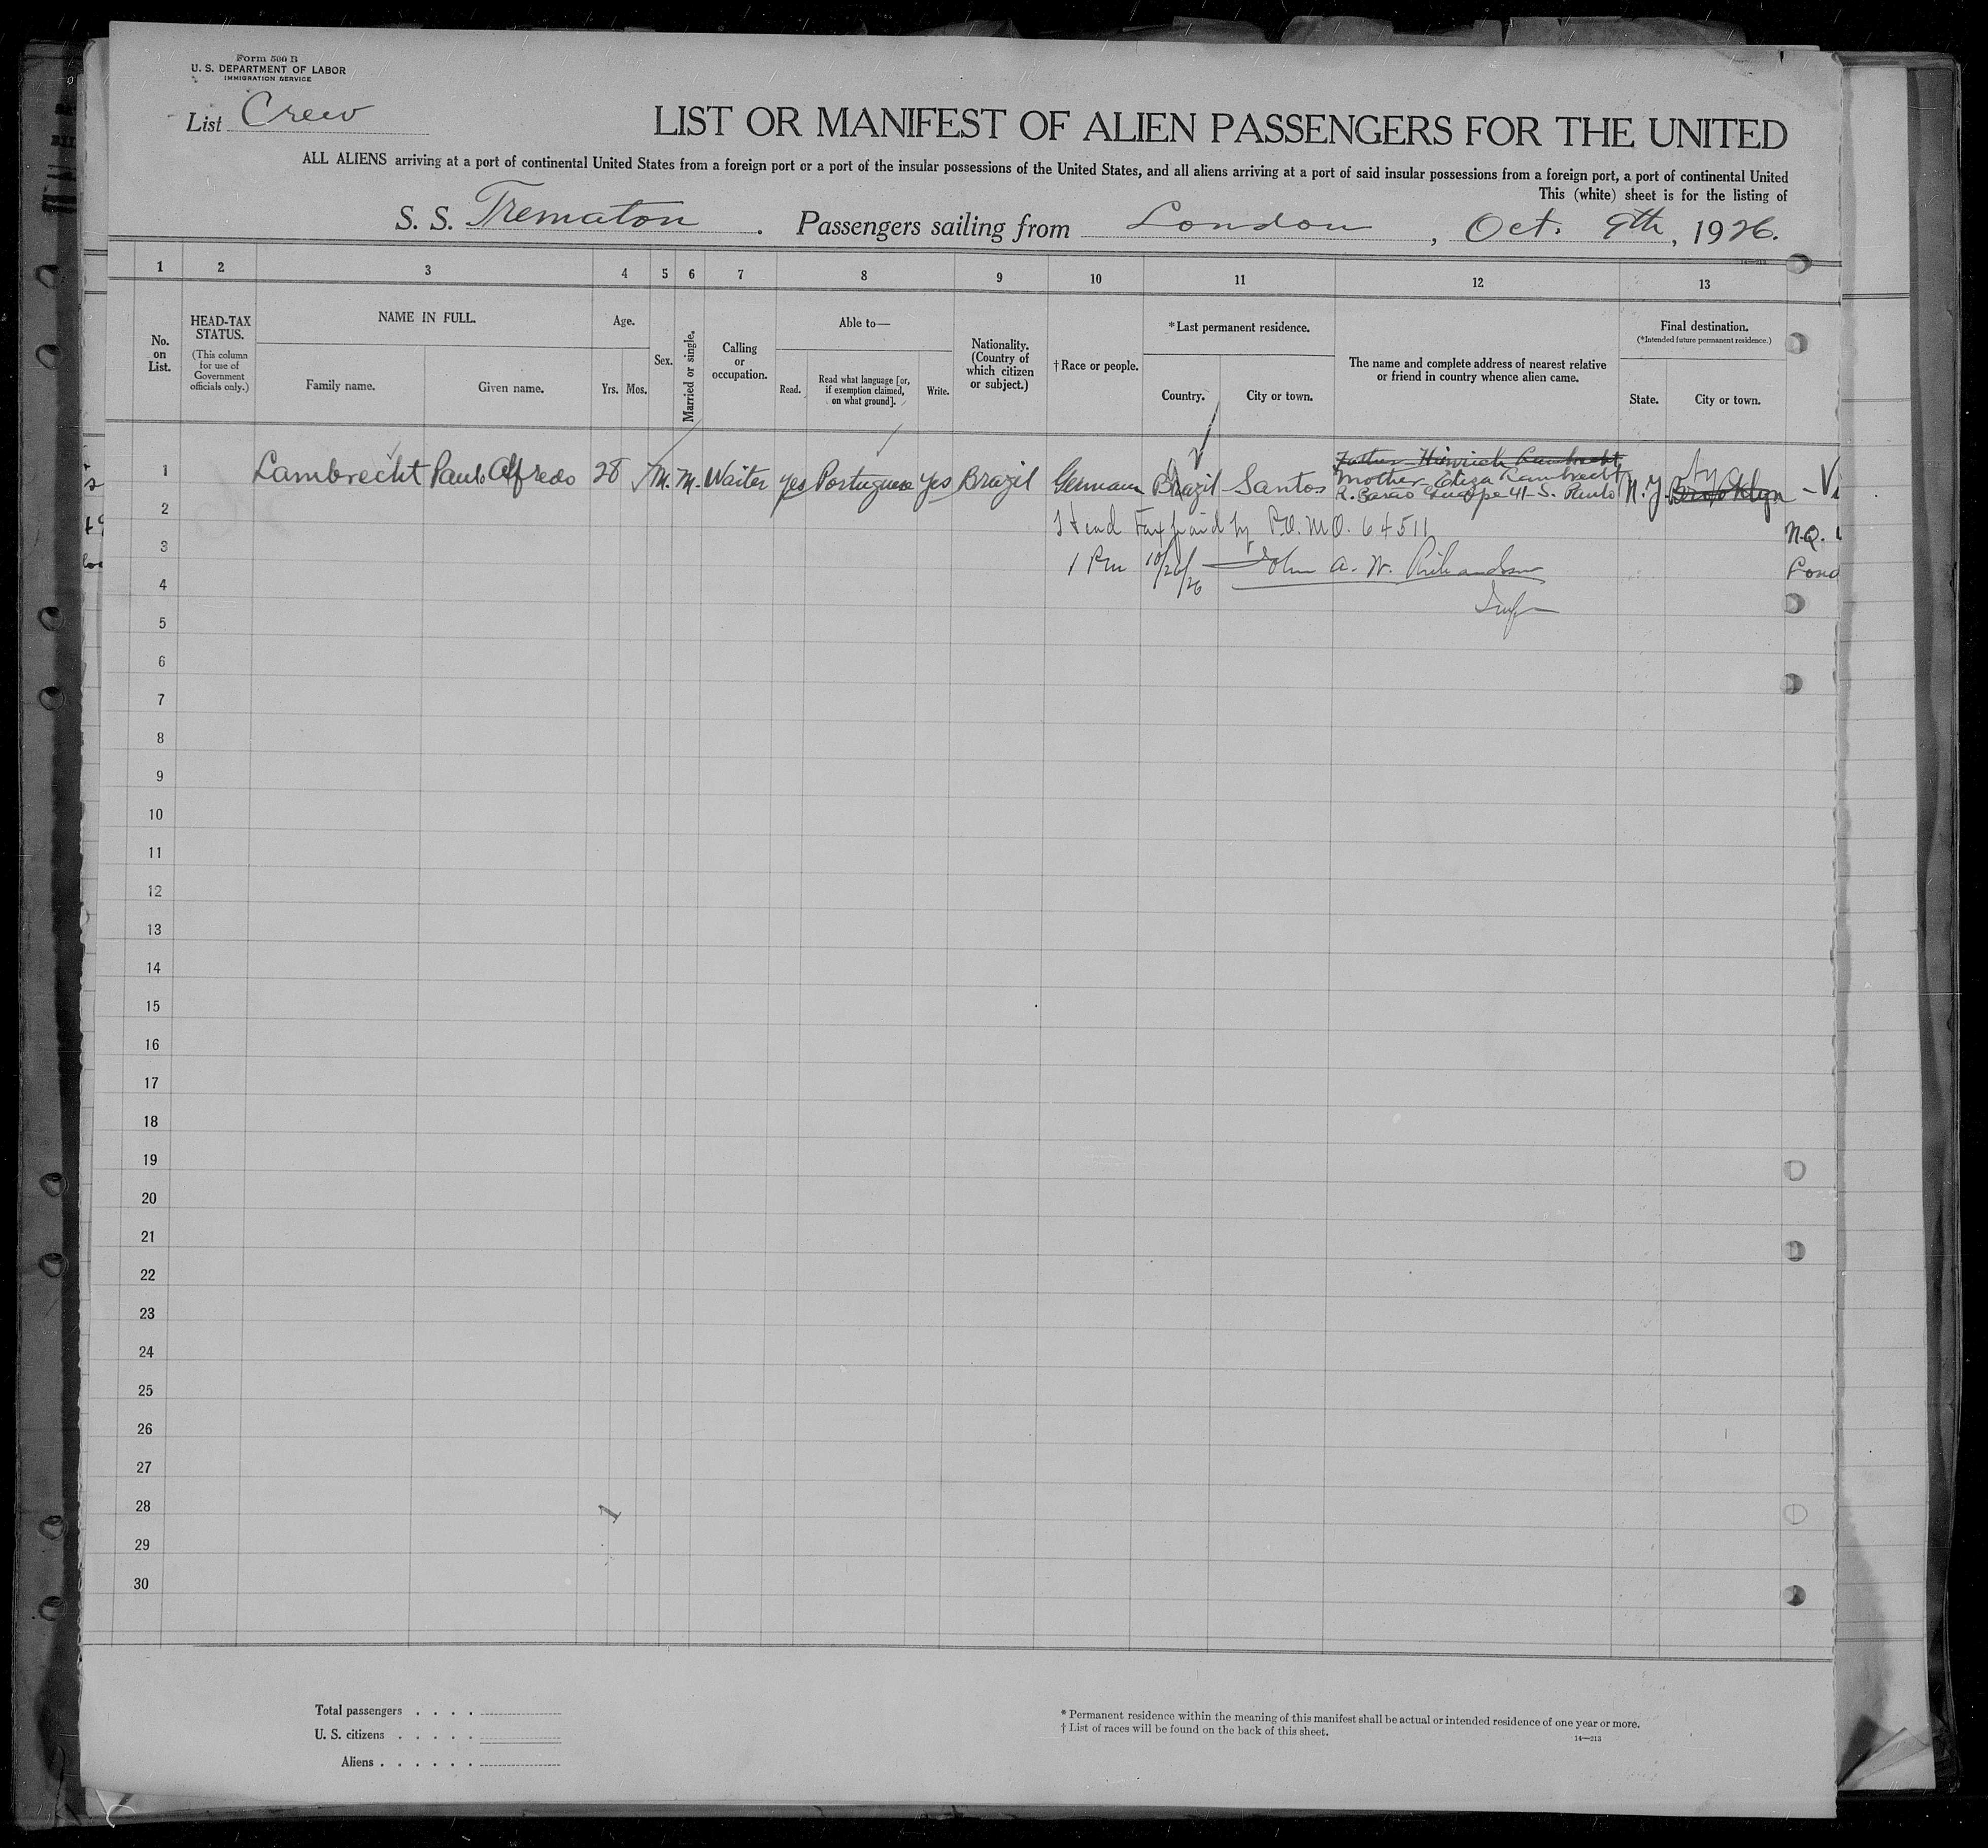 Form 500 B
U. S. DEPARTMENT OF LABOR
IMMIGRATION SERVICE
List Crew
LIST OR MANIFEST OF ALIEN PASSENGERS FOR THE UNITED
ALL ALIENS arriving at a port of continental United States from a foreign port or a port of the insular possessions of the United States, and all aliens arriving at a port of said insular possessions from a foreign port, a port of continental United
This (white) sheet is for the listing of
S. S. Trematon. Passengers sailing from London, Oct. 9th, 1926.
14—213
1 2 3 4 5 6 7 8 9 10 11 12 13
No. on List.
HEAD-TAX STATUS.
(This column for use of Government officials only.)
NAME IN FULL.
Family name. Given name.
Age.
Yrs. Mos.
Sex.
Married or single.
Calling or occupation.
Able to—
Read. Read what language [or, if exemption claimed, on what ground]. Write.
Nationality. (Country of which citizen or subject.)
†Race or people.
*Last permanent residence.
Country. City or town.
The name and complete address of nearest relative or friend in country whence alien came.
Final destination.
(*Intended future permanent residence.)
State. City or town.
Father Heinrich Lambrecht
1 Lambrecht Paulo Alfredo 28 M. M. Waiter yes Portuguese yes Brazil German Brazil Santos Mother Eliza Lambrecht N.Y. Brooklyn
R. Barão 41- S. Paulo
2 Head Tax paid by P.O. M.O. 64511 N.Q.
3 1 Pm 10/26/26 John A. W. Richardson
4 Insp
5
6
7
8
9
10
11
12
13
14
15
16
17
18
19
20
21
22
23
24
25
26
27
28
29
30
Total passengers . . . .
U. S. citizens . . . . .
Aliens . . . . . .
* Permanent residence within the meaning of this manifest shall be actual or intended residence of one year or more.
† List of races will be found on the back of this sheet.
14—213